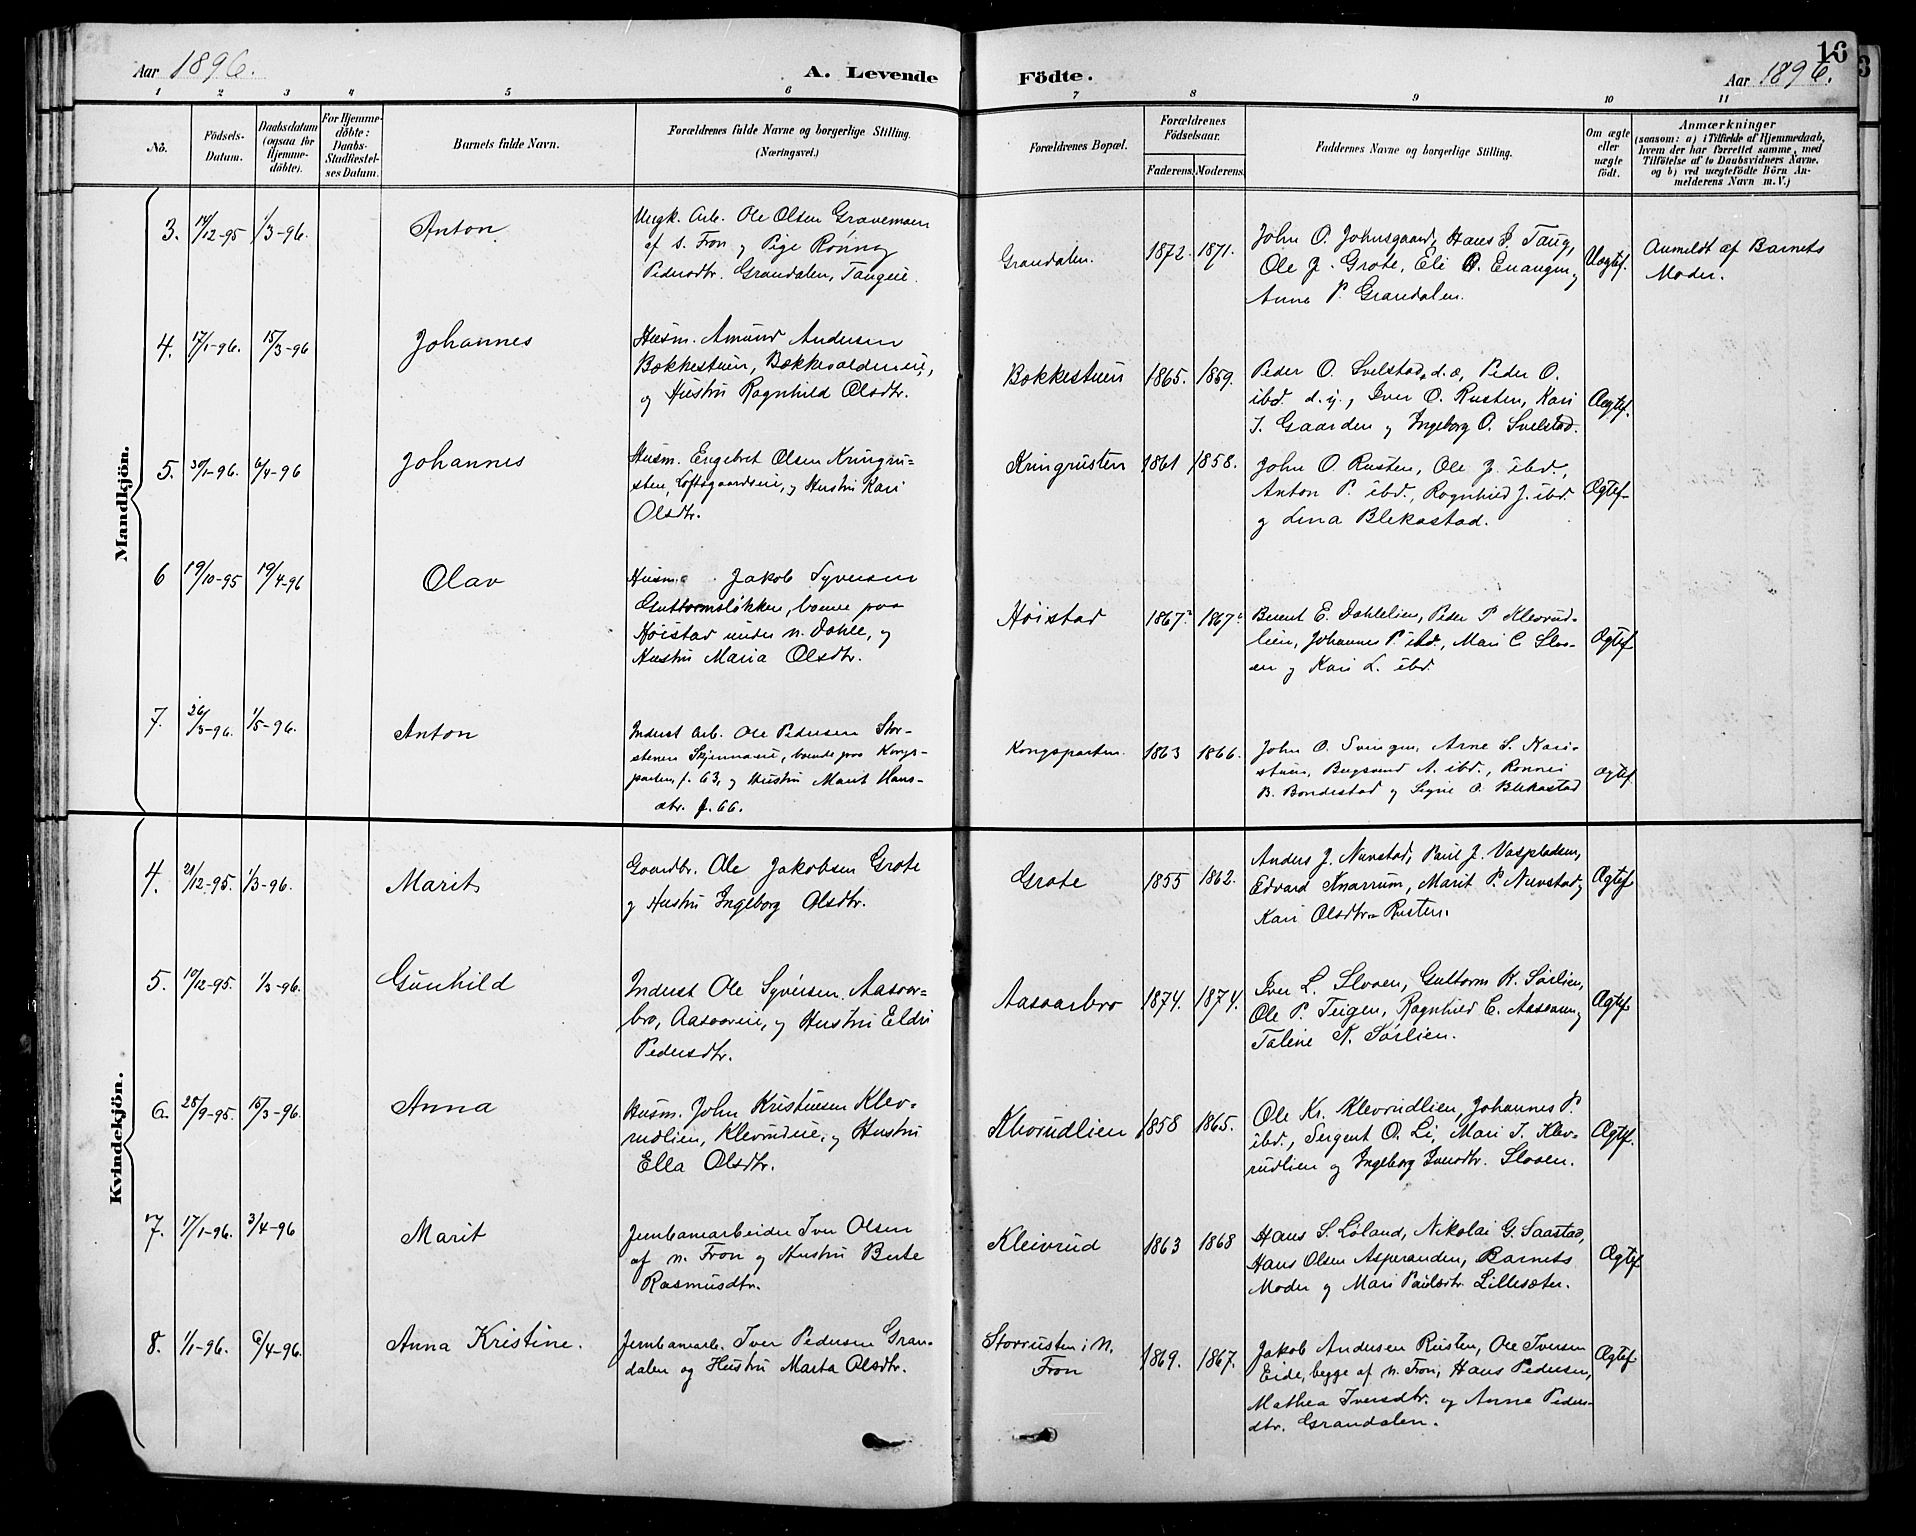 Aar 1896.
A. Levende Födte.
16
Aar 1896.
1 2 3 4 5 6 7 8 9 10 11
No.
Födsels-Datum.
Daabsdatum (ogsaa for Hjemme-döbte).
For Hjemme-döbte: Daabs-Stadfæstel-ses Datum.
Barnets fulde Navn.
Forældrenes fulde Navne og borgerlige Stilling.
(Næringsvei.)
Forældrenes Bopæl.
Forældrenes Födselsaar.
Faderens.
Moderens.
Faddernes Navne og borgerlige Stilling.
Om ægte eller uægte födt.
Anmærkninger
(saasom: a) i Tilfælde af Hjemmedaab,
hvem der har forrettet samme, med
Tilföielse af to Daabsvidners Navne,
og b) ved uægtefödte Börn An-
melderens Navn m. V.)
Mandkjön.
3. 14/12-95 1/3-96. Anton
Ungk. Arb. Ole Olsen Gravemoen
af s. Fron og Pige Rønnog
Pedersdtr. Grandalen, Tangeie.
Grandalen. 1872. 1871.
John O. Johnsgaard, Hans J. Taug,
Ole J. Grote, Eli O. Enangen og
Anne P. Grandalen.
Uægtef.
Anmeldt af Barnets
Moder.
4. 17/1-96. 15/3-96 Johannes
Husm. Amund Andersen
Bakkestuen, Bækkevoldeneie,
og Hustru Ragnhild Olsdtr.
Bakkestuen 1865. 1859.
Peder O. Svelstad d.æ, Peder O.
ibd. d.y., Iver O. Rusten, Kari
I. Gaarden og Ingeborg O. Svelstad.
Aegtef.
5. 30/1-96. 6/4-96 Johannes
Husm. Engebret Olsen Kringru-
sten, Loftsgaardseie, og Hustru Kari
Olsdtr.
Kringrusten 1861 1858.
John O. Rusten, Ole J. ibd.,
Anton P. ibd., Ragnhild J. ibd.
og Lina Blekastad.
Ægtef.
6 19/10-95 19/4-96 Olav
Husm. Jakob Syversen
Guttormsløkken, boende paa
Høistad under n. Dahle, og
Hustru Maria Olsdtr.
Høistad 1867 1867
Berent E. Dahlelien, Peder P. Klevrud-
lien, Johannes P. ibd., Mari C. Sloo-
en og Kari L. ibd.
Ægtef
7. 26/3-96. 1/5-96. Anton
Inderst Arb. Ole Pedersen Stor-
stenen Skjennaeie, boende paa Kongs-
parten, f. 63, og Hustru Marit Hans-
dtr. f. 66.
Kongsparten. 1863 1866.
John O. Svingen, Arne S. Kari-
stuen, Bergsvend A. ibd., Rønnei
B. Bondestad og Signe O. Blekastad
Ægtef
Kvindekjön.
4. 21/12-95. 1/3-96. Marit
Gaardbr. Ole Jakobsen Grote
og Hustru Ingeborg Olsdtr.
Grote 1855 1862.
Anders J. Nunstad, Paul J. Vaspladsen,
Edvard Knarrum, Marit P. Nunstad og
Kari Olsdtr. Rusten.
Ægtef
5. 10/12-95. 1/3-96. Gunhild
Inderst Ole Syversen Aasaar-
bro, Aasaareie, og Hustru Eldri
Pedersdtr.
Aasaarbro 1874. 1874.
Iver L. Slooen, Guttorm K. Sørlien,
Ole P. Teigen, Ragnhild C. Aasaaren og
Taline K. Sørlien.
Ægtef
6. 28/9-95. 15/3-96. Anna
Husm. John Kristensen Klev-
rudlien, Klevrudeie, og Hustru
Ella Olsdtr.
Klevrudlien 1858 1865.
Ole Kr. Klevrudlien, Johannes P.
ibd., Sergent O. Li, Mari I. Klev-
rudlien og Ingeborg Iversdtr. Slooen.
Ægtef.
7. 17/1-96. 3/4-96 Marit
Jernbanearbeider Iver Olsen
af n. Fron og Hustru Berte
Rasmusdtr.
Kleivrud 1863 1868
Hans S. Løland, Nikolai G. Saastad,
Hans Olsen Asperanden, Barnets
Moder og Mari Paulsdtr. Lillesæter.
Ægtef
8. 1/1-96. 6/4-96. Anna Kristine.
Jernbanearb. Iver Pedersen Gran-
dalen og Hustru Marta Olsdtr.
Storrusten i N.
Fron 1869. 1867.
Jakob Andersen Rusten, Ole Iversen
Eide, begge af n. Fron, Hans Pedersen,
Mathea Iversdtr. og Anne Peders-
dtr. Grandalen.
Ægtef